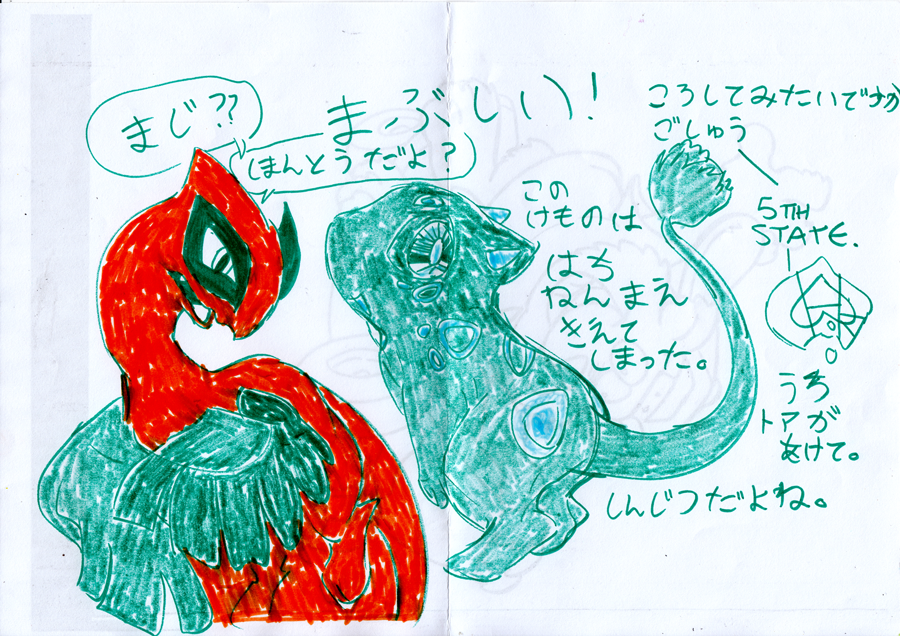 まじ??
まぶしい!
ほんとうだよ?
ころしてみたいですか
ごしゅう
5TH
STATE.
この
けものは
はち
ねんまえ
きえて
しまった。
うち
トアが
あけて。
しんじつだよね。